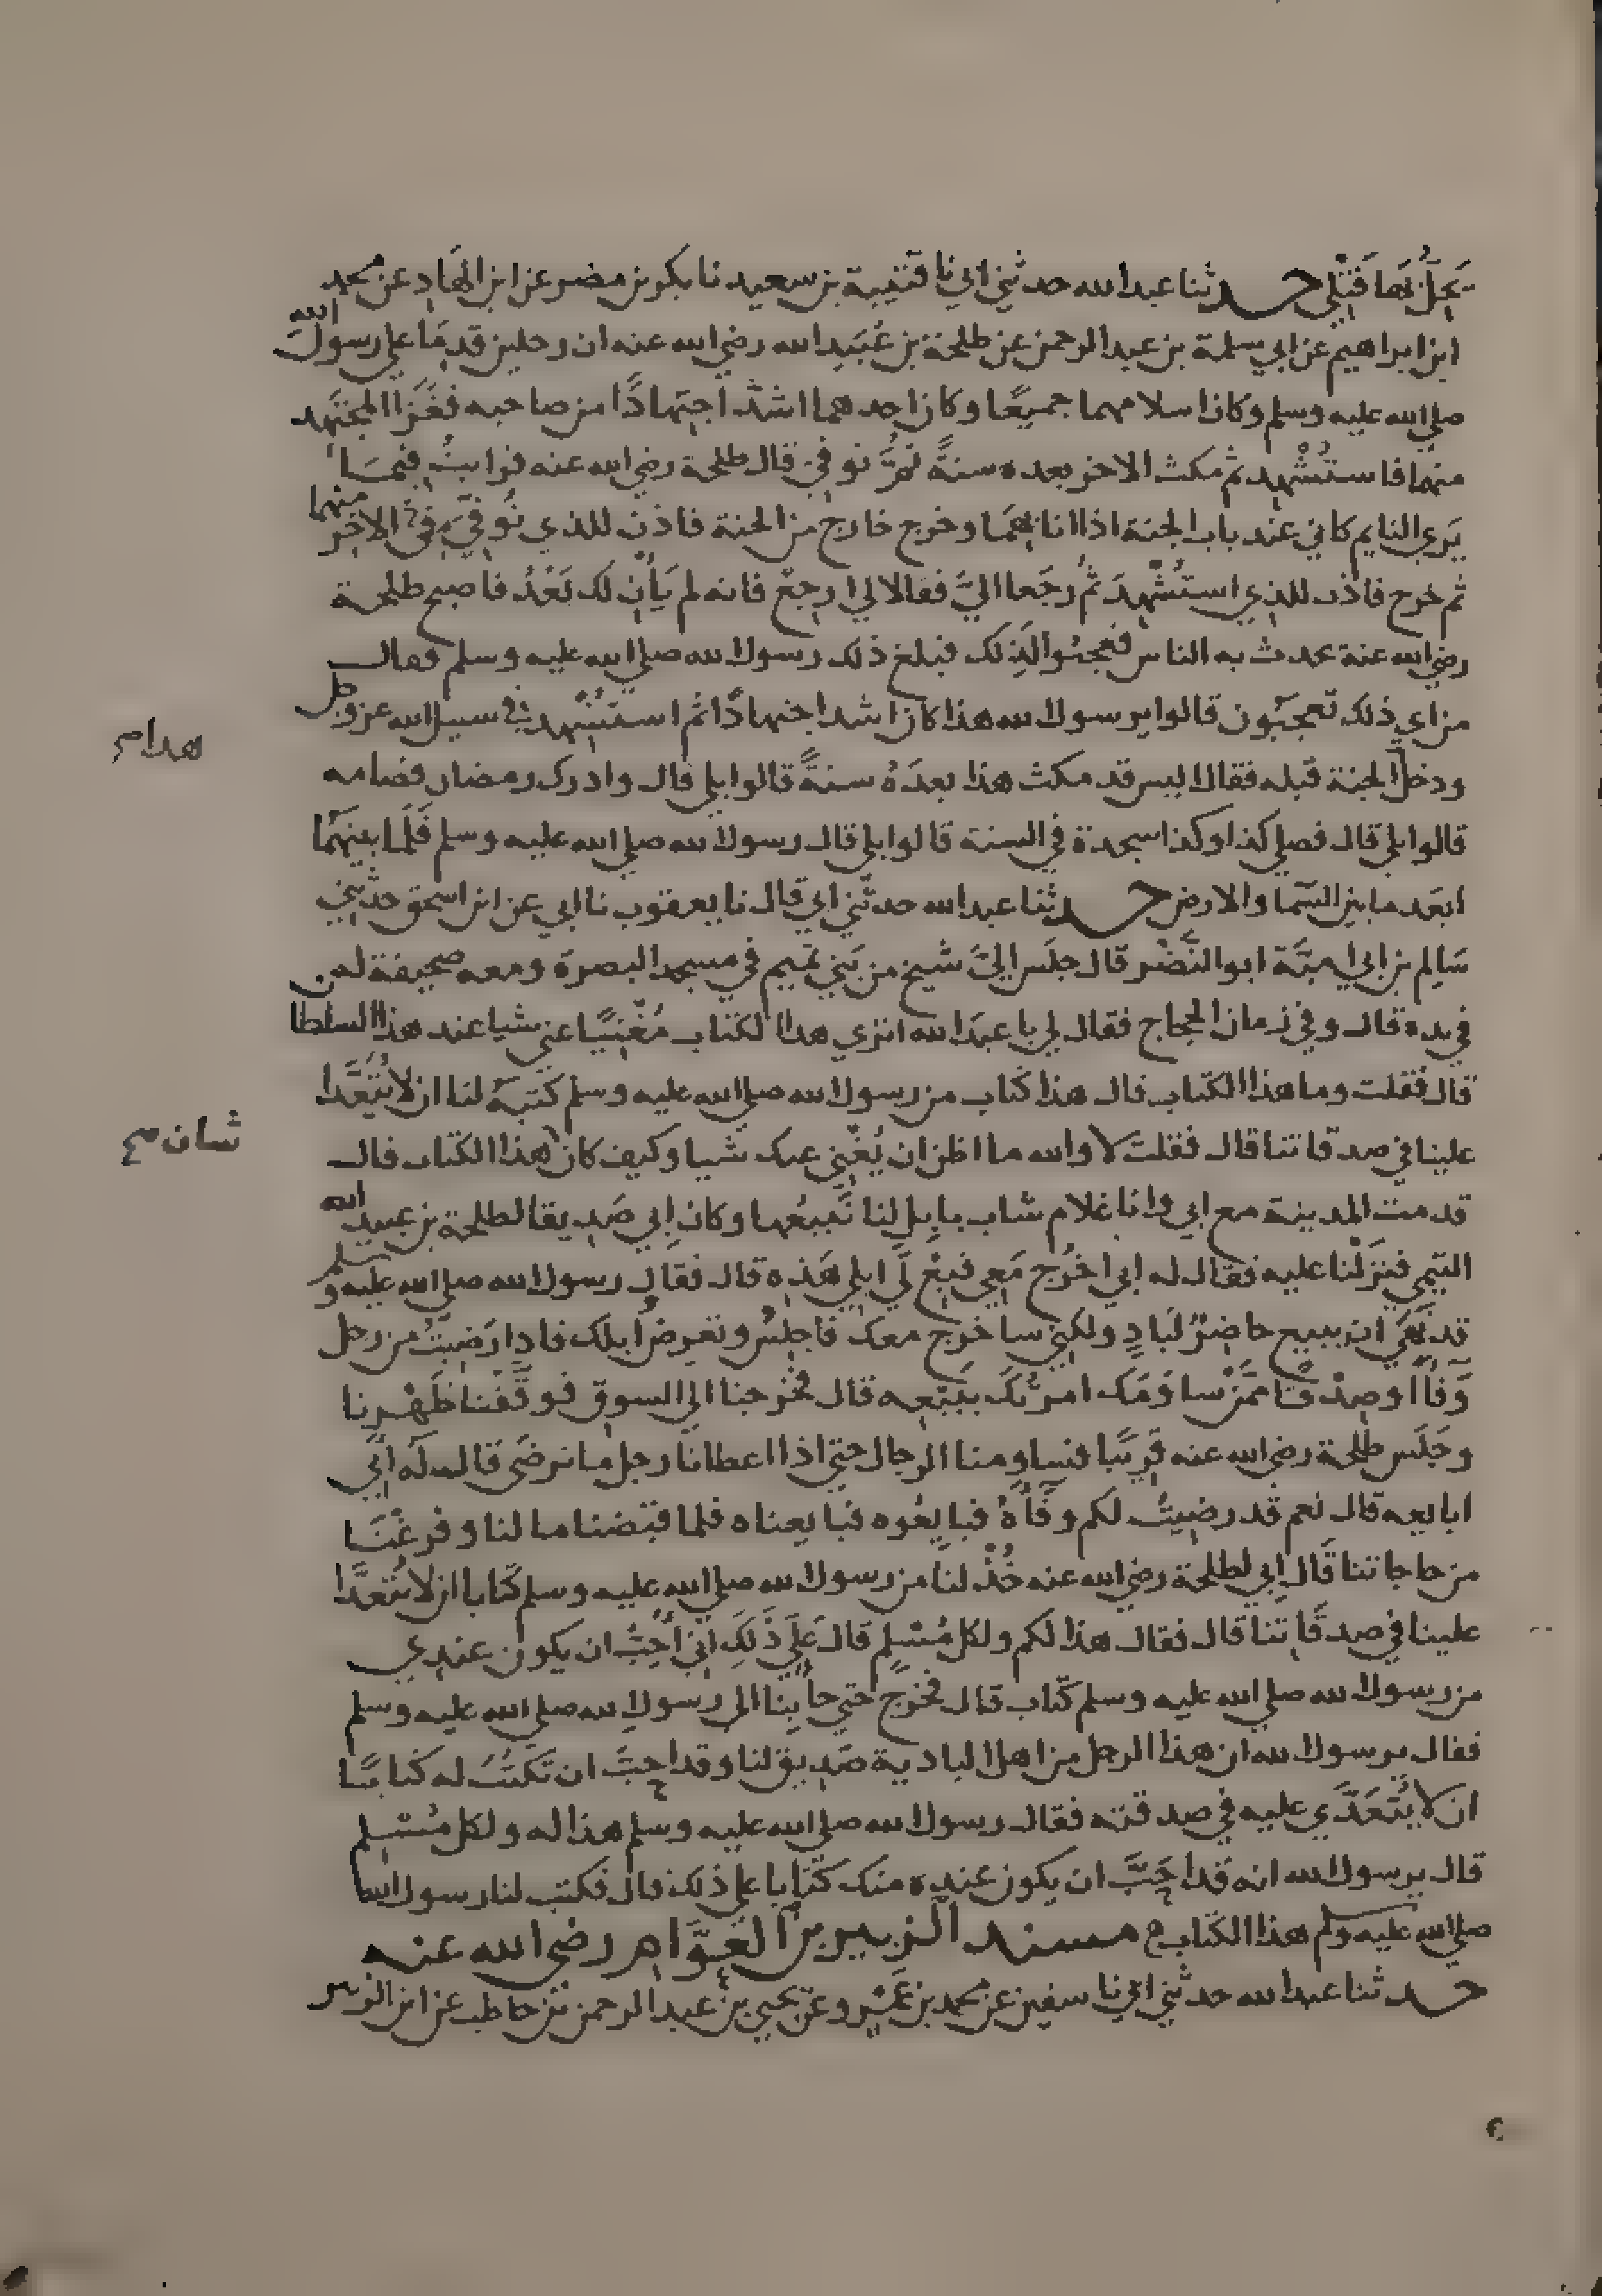 يحل بها قبلي حدثنا عبد الله حدثني ابي نا قتيبة بن سعيد نا بكر بن مضر عن ابن الهاد عن محمد
ابن ابراهيم عن ابي سلمة بن عبد الرحمن عن طلحة بن عبيد الله رضي الله عنه ان رجلين قدما علي رسول الله
صلي الله عليه وسلم وكان اسلامهما جميعا وكان احدهما اشد اجتهادا من صاحبه فغزا المجتهد
منهما فاستشهد ثم مكث الاخر بعده سنة ثم توفي قال طلحة رضي الله عنه فرايت فيما
يري النايم كاني عند باب الجنة اذا انا بهما وخرج خارج من الجنة فاذن للذي توفي الاخر منهما
ثم خرج فاذن للذي استشهد ثم رجعا الي فقالا لي ارجع فانه لم يأن لك بعد فاصبح طلحة
رضي الله عنه يحدث به الناس فعجبوا لذلك فبلغ ذلك رسول الله صلي الله عليه وسلم فقال
من اي ذلك تعجبون قالوا يرسول الله هذا كان اشد اجتهادا ثم استشهد في سبيل الله عز وجل
ودخل الجنة قبله فقال اليس قد مكث هذا بعده سنة قالوا بلي قال وادرك رمضان فصامه
هدا
قالوا بلي قال فصلي كذا وكذا سجدة في السنة قالوا بلي قال رسول الله صلي الله عليه وسلم فلما بينهما
ابعد ما بين السما والارض حدثنا عبد الله حدثني ابي قال نا يعقوب نا ابي عن ابن اسحق حدثني
سالم بن ابي امية ابو النضر قال جلس الي شيخ من بني تميم في مسجد البصرة ومعه صحيفة له
في يده قال وفي زمان الحجاج فقال لي يا عبد الله اتري هذا الكتاب مغنيا عني شيا عند هذا السلطان
قال فقلت وما هذا الكتاب قال هذا كتاب من رسول الله صلي الله عليه وسلم كتبه لنا ان لا يتعدا
علينا في صدقاتنا قال فقلت لا والله ما اظن ان يغني عنك شيا وكيف كان هذا الكتاب قال
شان
قدمت المدينة مع ابي وانا غلام شاب بابل لنا نبيعها وكان ابي صديقا لطلحة بن عبيد الله
التيمي فنزلنا عليه فقال له ابي اخرج معي فبع لي ابلي هذه قال فقال رسول الله صلي الله عليه وسلم
قد نهي ان يبيع حاضر لباد ولكني ساخرج معك فاجلس وتعرض ابلك فاذا رضيت من رجل
وفاا وصدقا ممن ساومك امرتك ببيعه قال فخرجنا الي السوق فوقفنا ظهرنا
وجلس طلحة رضي الله عنه قريبا فساومنا الرجال حتي اذا اعطانا رجل ما نرضي قال له ابي
ابايعه قال نعم قد رضيت لكم وفاه فبايعوه فبايعناه فلما قبضنا ما لنا وفرغنا
من حاجاتنا قال ابي لطلحة رضي الله عنه خذ لنا من رسول الله صلي الله عليه وسلم كتابا ان لا يتعدا
علينا في صدقاتنا قال فقال هذا لكم ولكل مسلم قال علي ذلك اني احب ان يكون عندي
من رسول الله صلي الله عليه وسلم كتاب قال فخرج حتي جا بنا الي رسول الله صلي الله عليه وسلم
فقال يرسول الله ان هذا الرجل من اهل البادية صديق لنا وقد احب ان تكتب له كتابا
ان لا يتعدي عليه في صدقته فقال رسول الله صلي الله عليه وسلم هذا له ولكل مسلم
قال يرسول الله انه قد احب ان يكون عنده منك كتابا علي ذلك قال فكتب لنا رسول الله
صلي الله عليه وسلم هذا الكتاب مسند الزبير بن العوام رضي الله عنه
حدثنا عبد الله حدثني ابي نا سفين عن محمد بن عمرو عن يحيي بن عبد الرحمن بن حاطب عن ابن الزبير